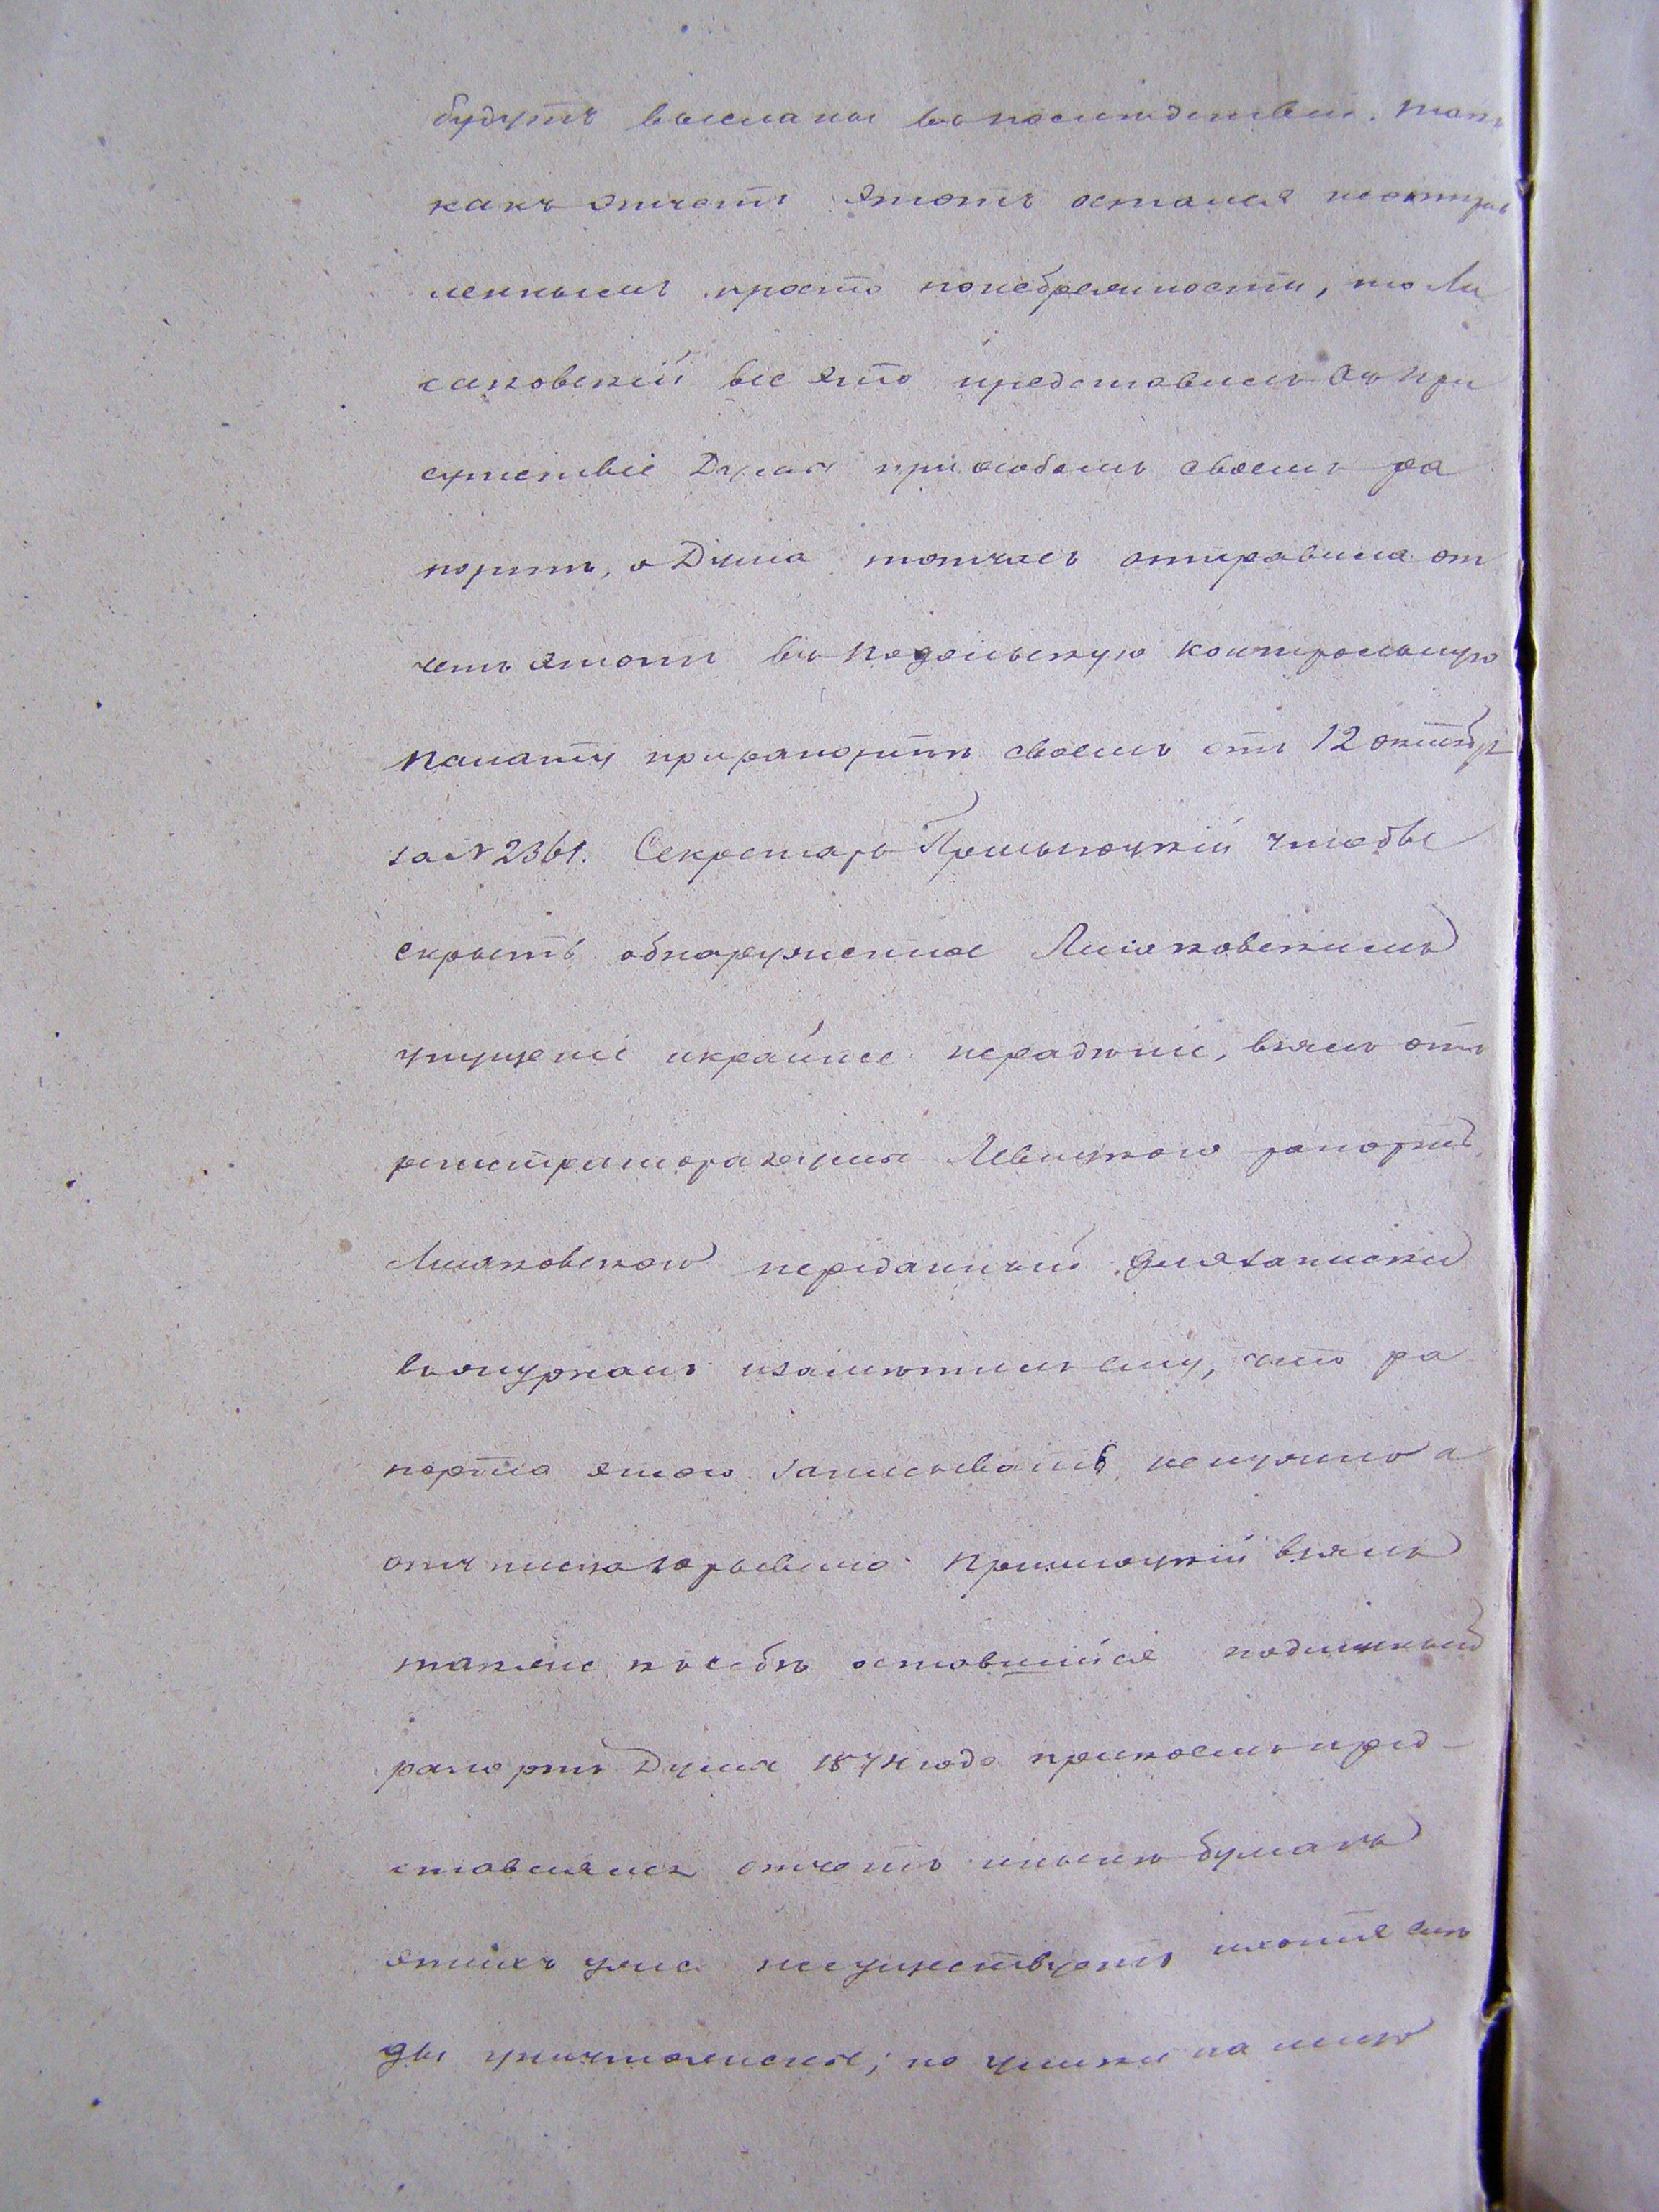 будутъ высланы въ последствіи. Такъ
какъ отчетъ этотъ остался неотправ
леннымъ просто понебрежности, то Ли
саковскій все это представилъ въ при
сутствіе Думы при особомъ своемъ ра
портѣ, а Дума тотчасъ отправила от
четъ этотъ въ Подольскую Контрольную
Палату при рапортѣ своемъ отъ 12 октябр
за № 2361. Секретарь чтобы
скрыть обнаруженное Лисаковскимъ
упущеніе икрайнее нерадѣніе, взялъ отъ
регистратора Думы Левицкого рапортъ
Лисаковского переданный для записки
въ журналъ изамѣтилъ ему, что ра
порта этого записывать ненужно а
взялъ
также къ себѣ оставшійся подлинный
рапортъ Думы 1874 года при коемъ пред-
ставлялся отчетъ инынѣ бумагъ
этихъ уже несуществуетъ ихотя слѣ
ды уничтожены; но улики на лицо